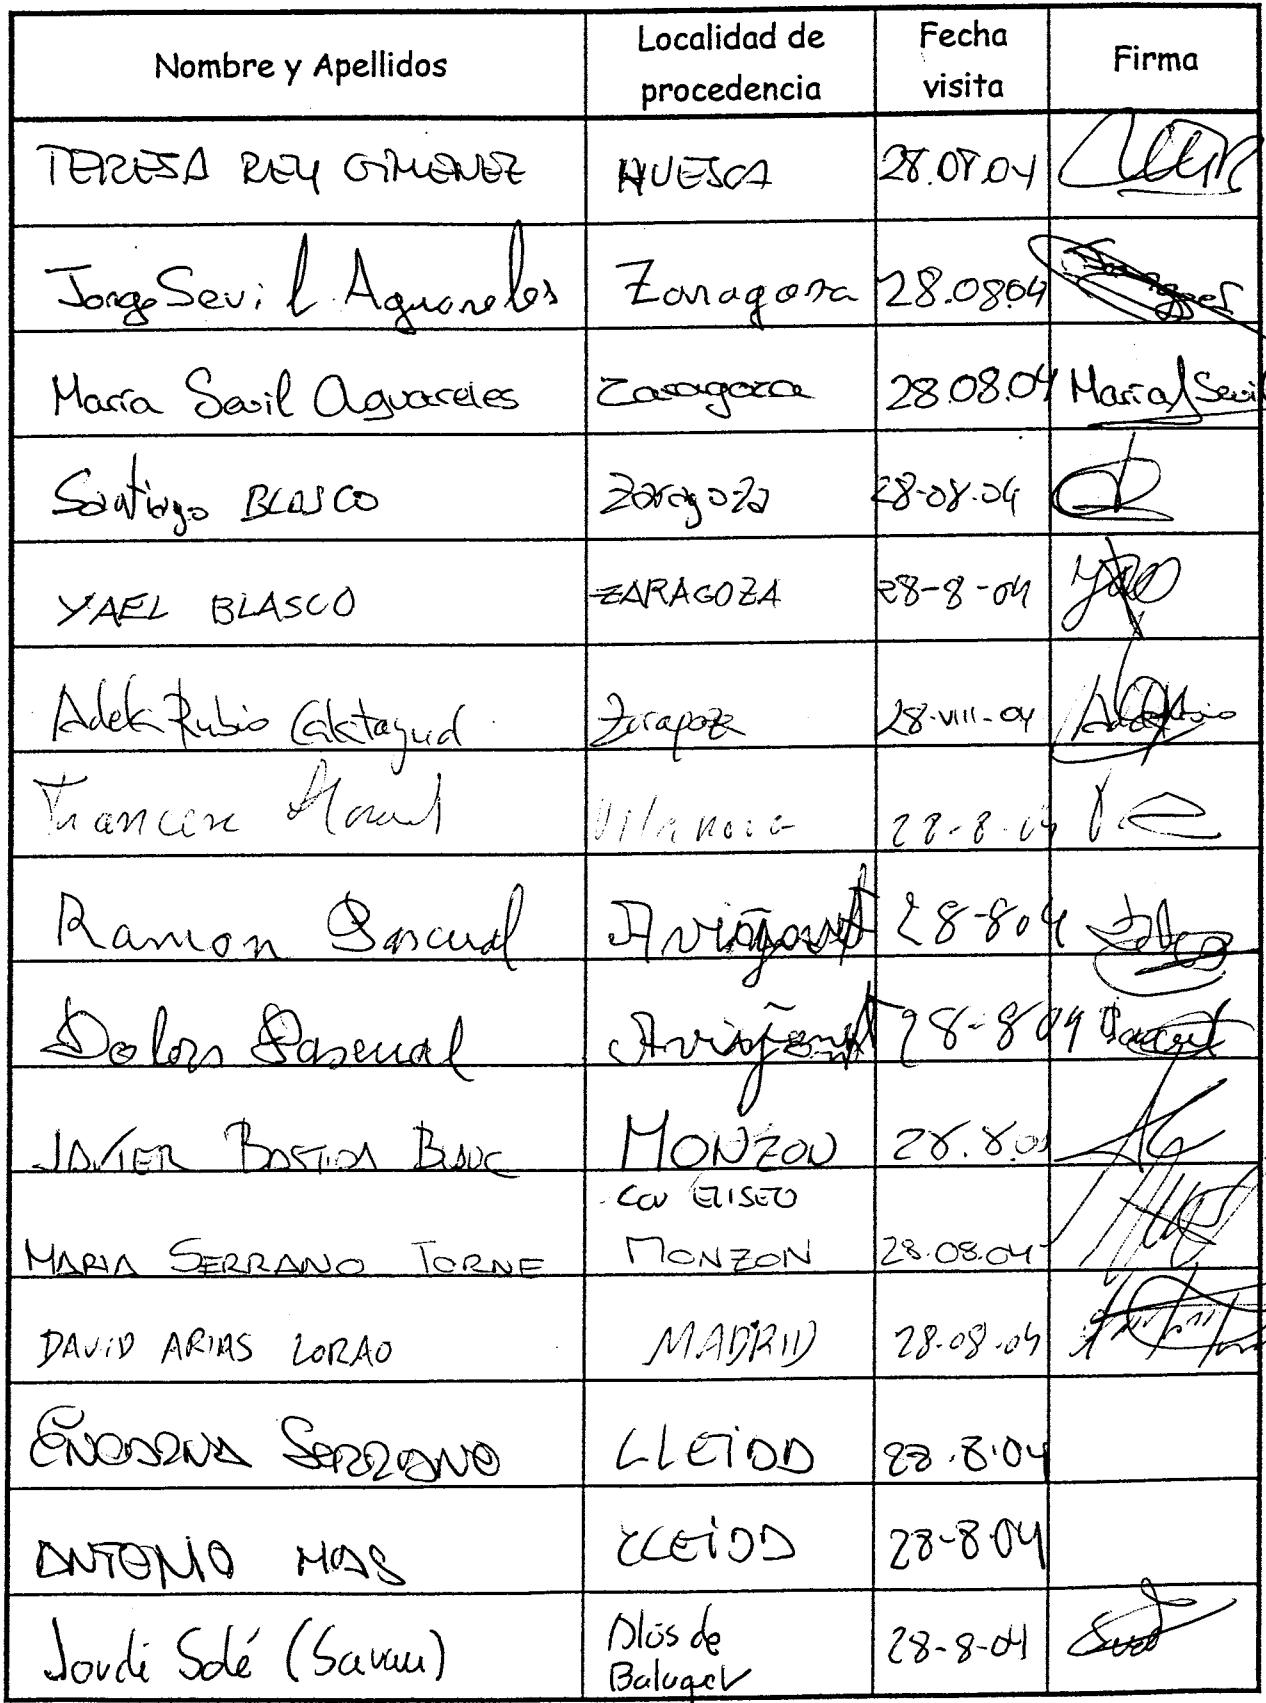 Nombre y Apellidos Localidad de procedencia Fecha visita Firma
TERESA REY GIMENEZ HUESCA 28.08.04
Jorge Sevil Aguareles Zaragoza 28.08.04
María Sevil Aguareles Zaragoza 28.08.04 María Sevil
Santiago BLASCO Zaragoza 28-08-04
YAEL BLASCO ZARAGOZA 28-8-04
Adela Rubio Calatayud Zaragoza 28-VIII-04
Francesc Vilanova 28-8-04
Ramon Pascual Avinyonet 28-8 04
Dolors Pascual Avinyonet 28-8 04
JAVIER BASTIDA BLANC MONZON 28.8.04
CON ELISEO
MARIA SERRANO TORNE MONZON 28.08.04
DAVID ARIAS LORAO MADRID 28.08.04
ENCARNA SERRANO LLEIDA 28.8.04
ANTONIO MAS LLEIDA 28-8-04
Jordi Solé (Savau) de Balaguer 28-8-04